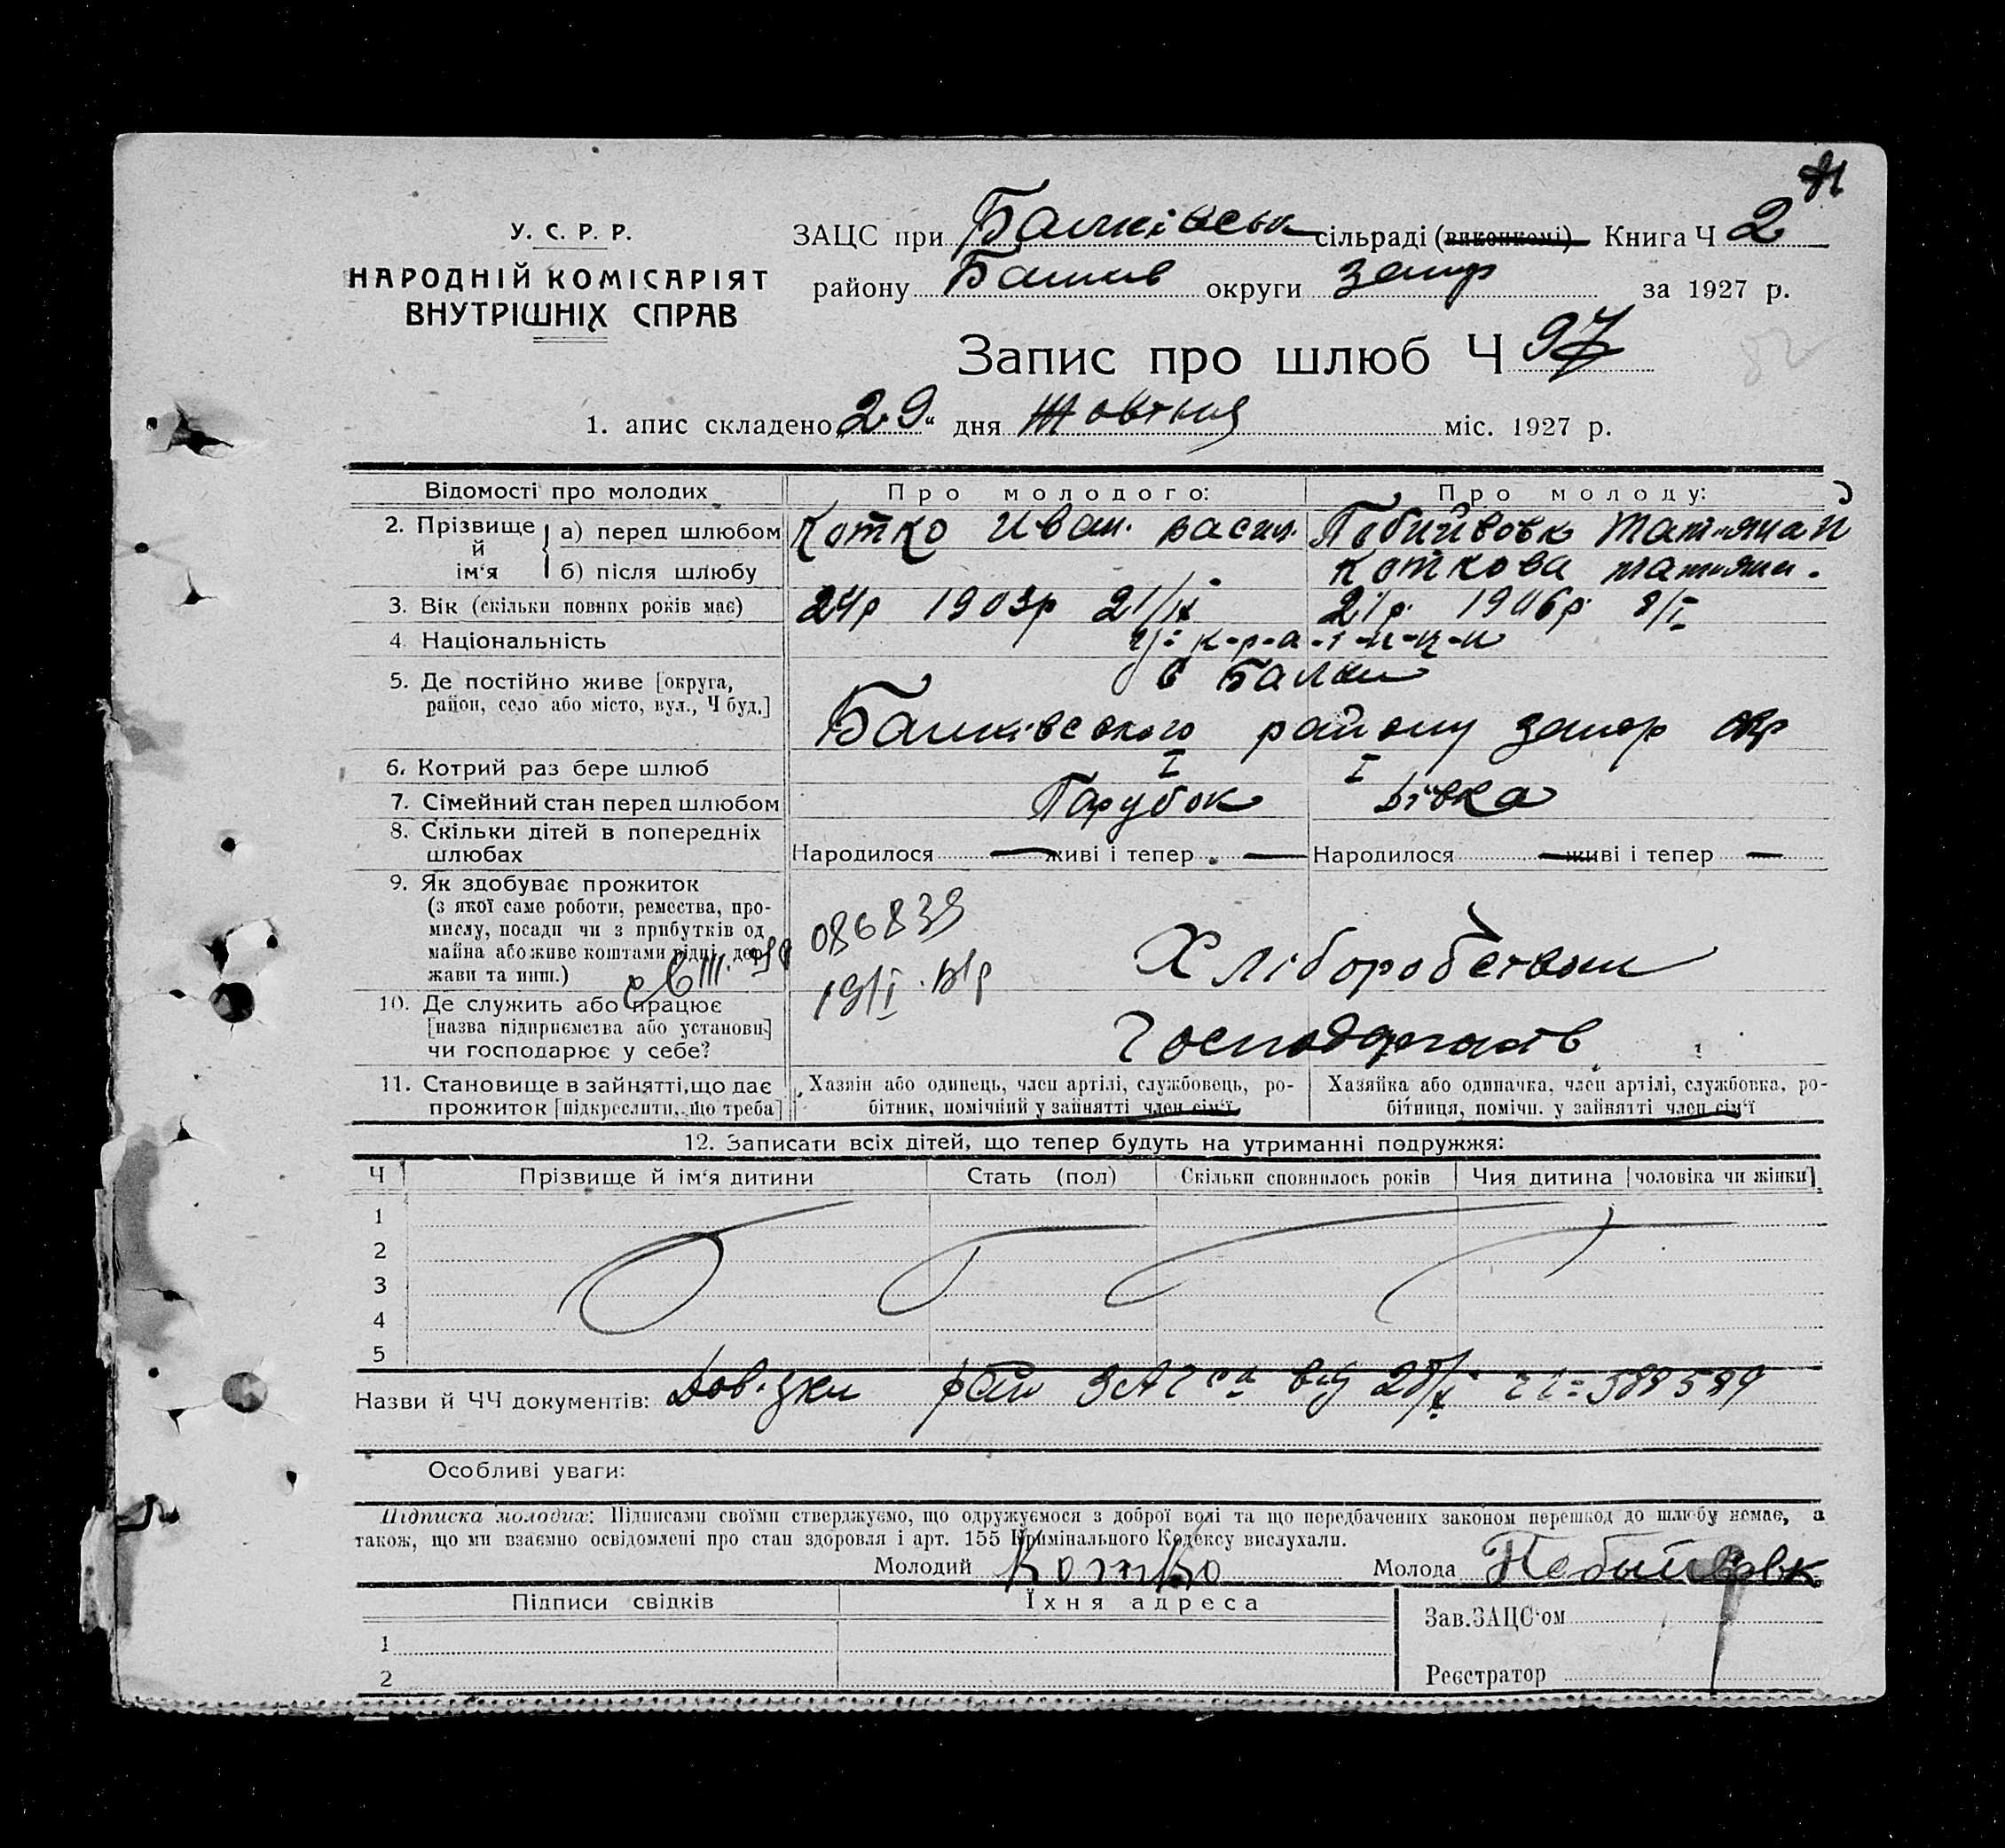 У. С. Р. Р.
НАРОДНІЙ КОМІСАРІЯТ
ВНУТРІШНІХ СПРАВ
ЗАЦС при Балківськ сільраді (виконкомі) Книга Ч 2
району Балків округи запор за 1927 р.
Запис про шлюб Ч 97
82
1. апис складено „29“ дня Жовтня міс. 1927 р.
Відомості про молодих
Про молодого:
Про молоду:
2. Прізвище й ім‘я
а) перед шлюбом
Котко Иван. васил.
Побийвовк Татьяна
б) після шлюбу
Коткова татьяна.
3. Вік (скільки повних років має)
24р 1903р 21/IX
21р. 1906р 8/I
4 Національність
у-к-р-а-ї-н-ц-и
5. Де постійно живе [округа, район, село або місто, вул., Ч буд.]
с Балки
Балківського району запор окр
6. Котрий раз бере шлюб
I
I
7. Сімейний стан перед шлюбом
Парубок
Дівка
8. Скільки дітей в попередніх шлюбах
Народилося — живі і тепер —
Народилося — живі і тепер —
9. Як здобуває прожиток
(з якої саме роботи, ремества, про-
мислу, посади чи з прибутків од
майна або живе коштами рідні, дер-
жави та инш.)
086839
Хліборобством
10. Де служить або працює
[назва підприємства або установи]
чи господарює у себе?
Господарюють
11. Становище в зайнятті, що дає
прожиток [підкреслити, що треба]
Хазяїн або одинець, член артілі, службовець, ро-
бітник, помічний у зайнятті член сім‘ї
Хазяйка або одиначка, член артілі, службовка, ро-
бітниця, помічн. у зайнятті член сім‘ї
12. Записати всіх дітей, що тепер будуть на утриманні подружжя:
Ч Прізвище й ім‘я дитини Стать (пол) Скільки сповнилось років Чия дитина [чоловіка чи жінки]
1
2
3
4
5
Назви й ЧЧ документів: Довідки рай ЗАГСа від 28/X 589589
Особливі уваги:
Підписка молодих: Підписами своїми стверджуємо, що одружуємося з доброї волі та що передбачених законом перешкод до шлюбу немає, а
також, що ми взаємно освідомлені про стан здоровля і арт. 155 Кримінального Кодексу вислухали.
Молодий Котко Молода Побыйвовк
Підписи свідків Їхня адреса
Зав.ЗАЦС‘ом
1
2
Реєстратор